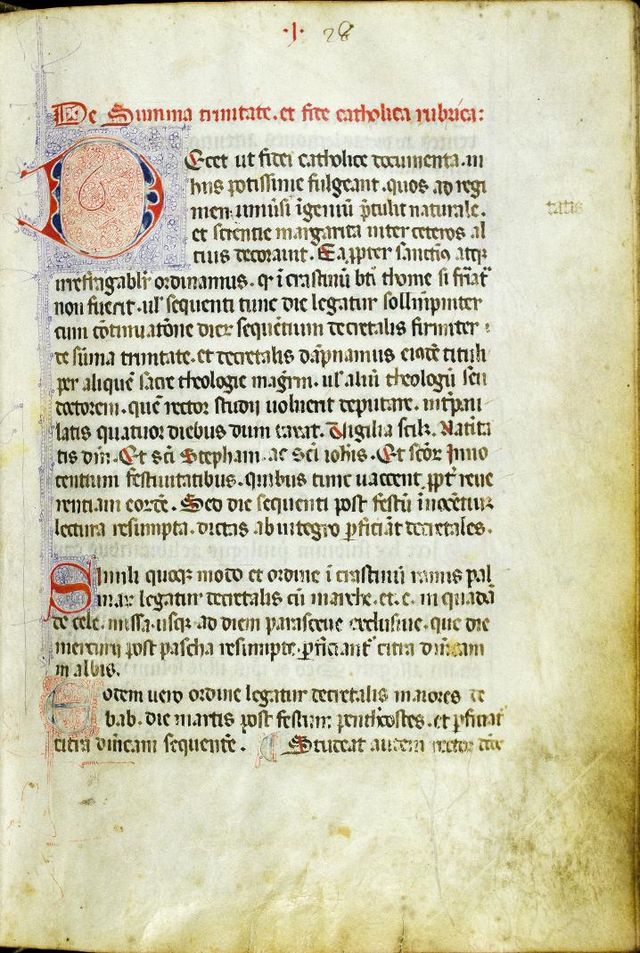 ·I· 28
De Summa trinitate. et fide catholica rubrica:
Decet ut fidei catholice documenta. in
hiis potissime fulgeant. quos ad regi
men
et scientie margarita inter ceteros al
tius decoravit. Eapp̱ter sanctius atqȝ
irrefragabilr̄ ordinamus. qr̄ ī crastinū bt̄i thome si
non fuerit. ul' sequenti tunc die legatur sollīmpniter
cum cōtinuatōne dier sequētium decretalis firmiter
de sūma trinitate. et decretalis dāpnamus eiusdē tituli
per aliquē sacre theologie magr̄m. ul' aliū theologū seu
doctorem. quē rector studii voluerit deputare.
latis quatuor diebus dum taxat. Vigilia scil'. Natiuita
tis dn̄i. Et sc̄i Stephani. ac sc̄i ioh̄is. Et sc̄or Inno
centium festiuitatibus. quibus tunc uaccent. ppt̄ reue
rentiam eordē. Sed die sequenti post festū īnocētiur
lectura resumpta. dictas ab integro pficiāt decretales.
Simili quoqȝ modo et ordine ī crastinū ramis pal
mar legatur decretalis cū marthe. et. e. in quadā
de cele. missa. usqȝ ad diem parasceue exclusiue. que die
mercurij post pascha resumpte. pficiant' citra dn̄icam
in albis.
Eodem uero ordine legatur decretalis maiores de
bab. die martis post festum penthecostes. et pficiat'
citra dn̄icam sequentē. Studeat autem rector